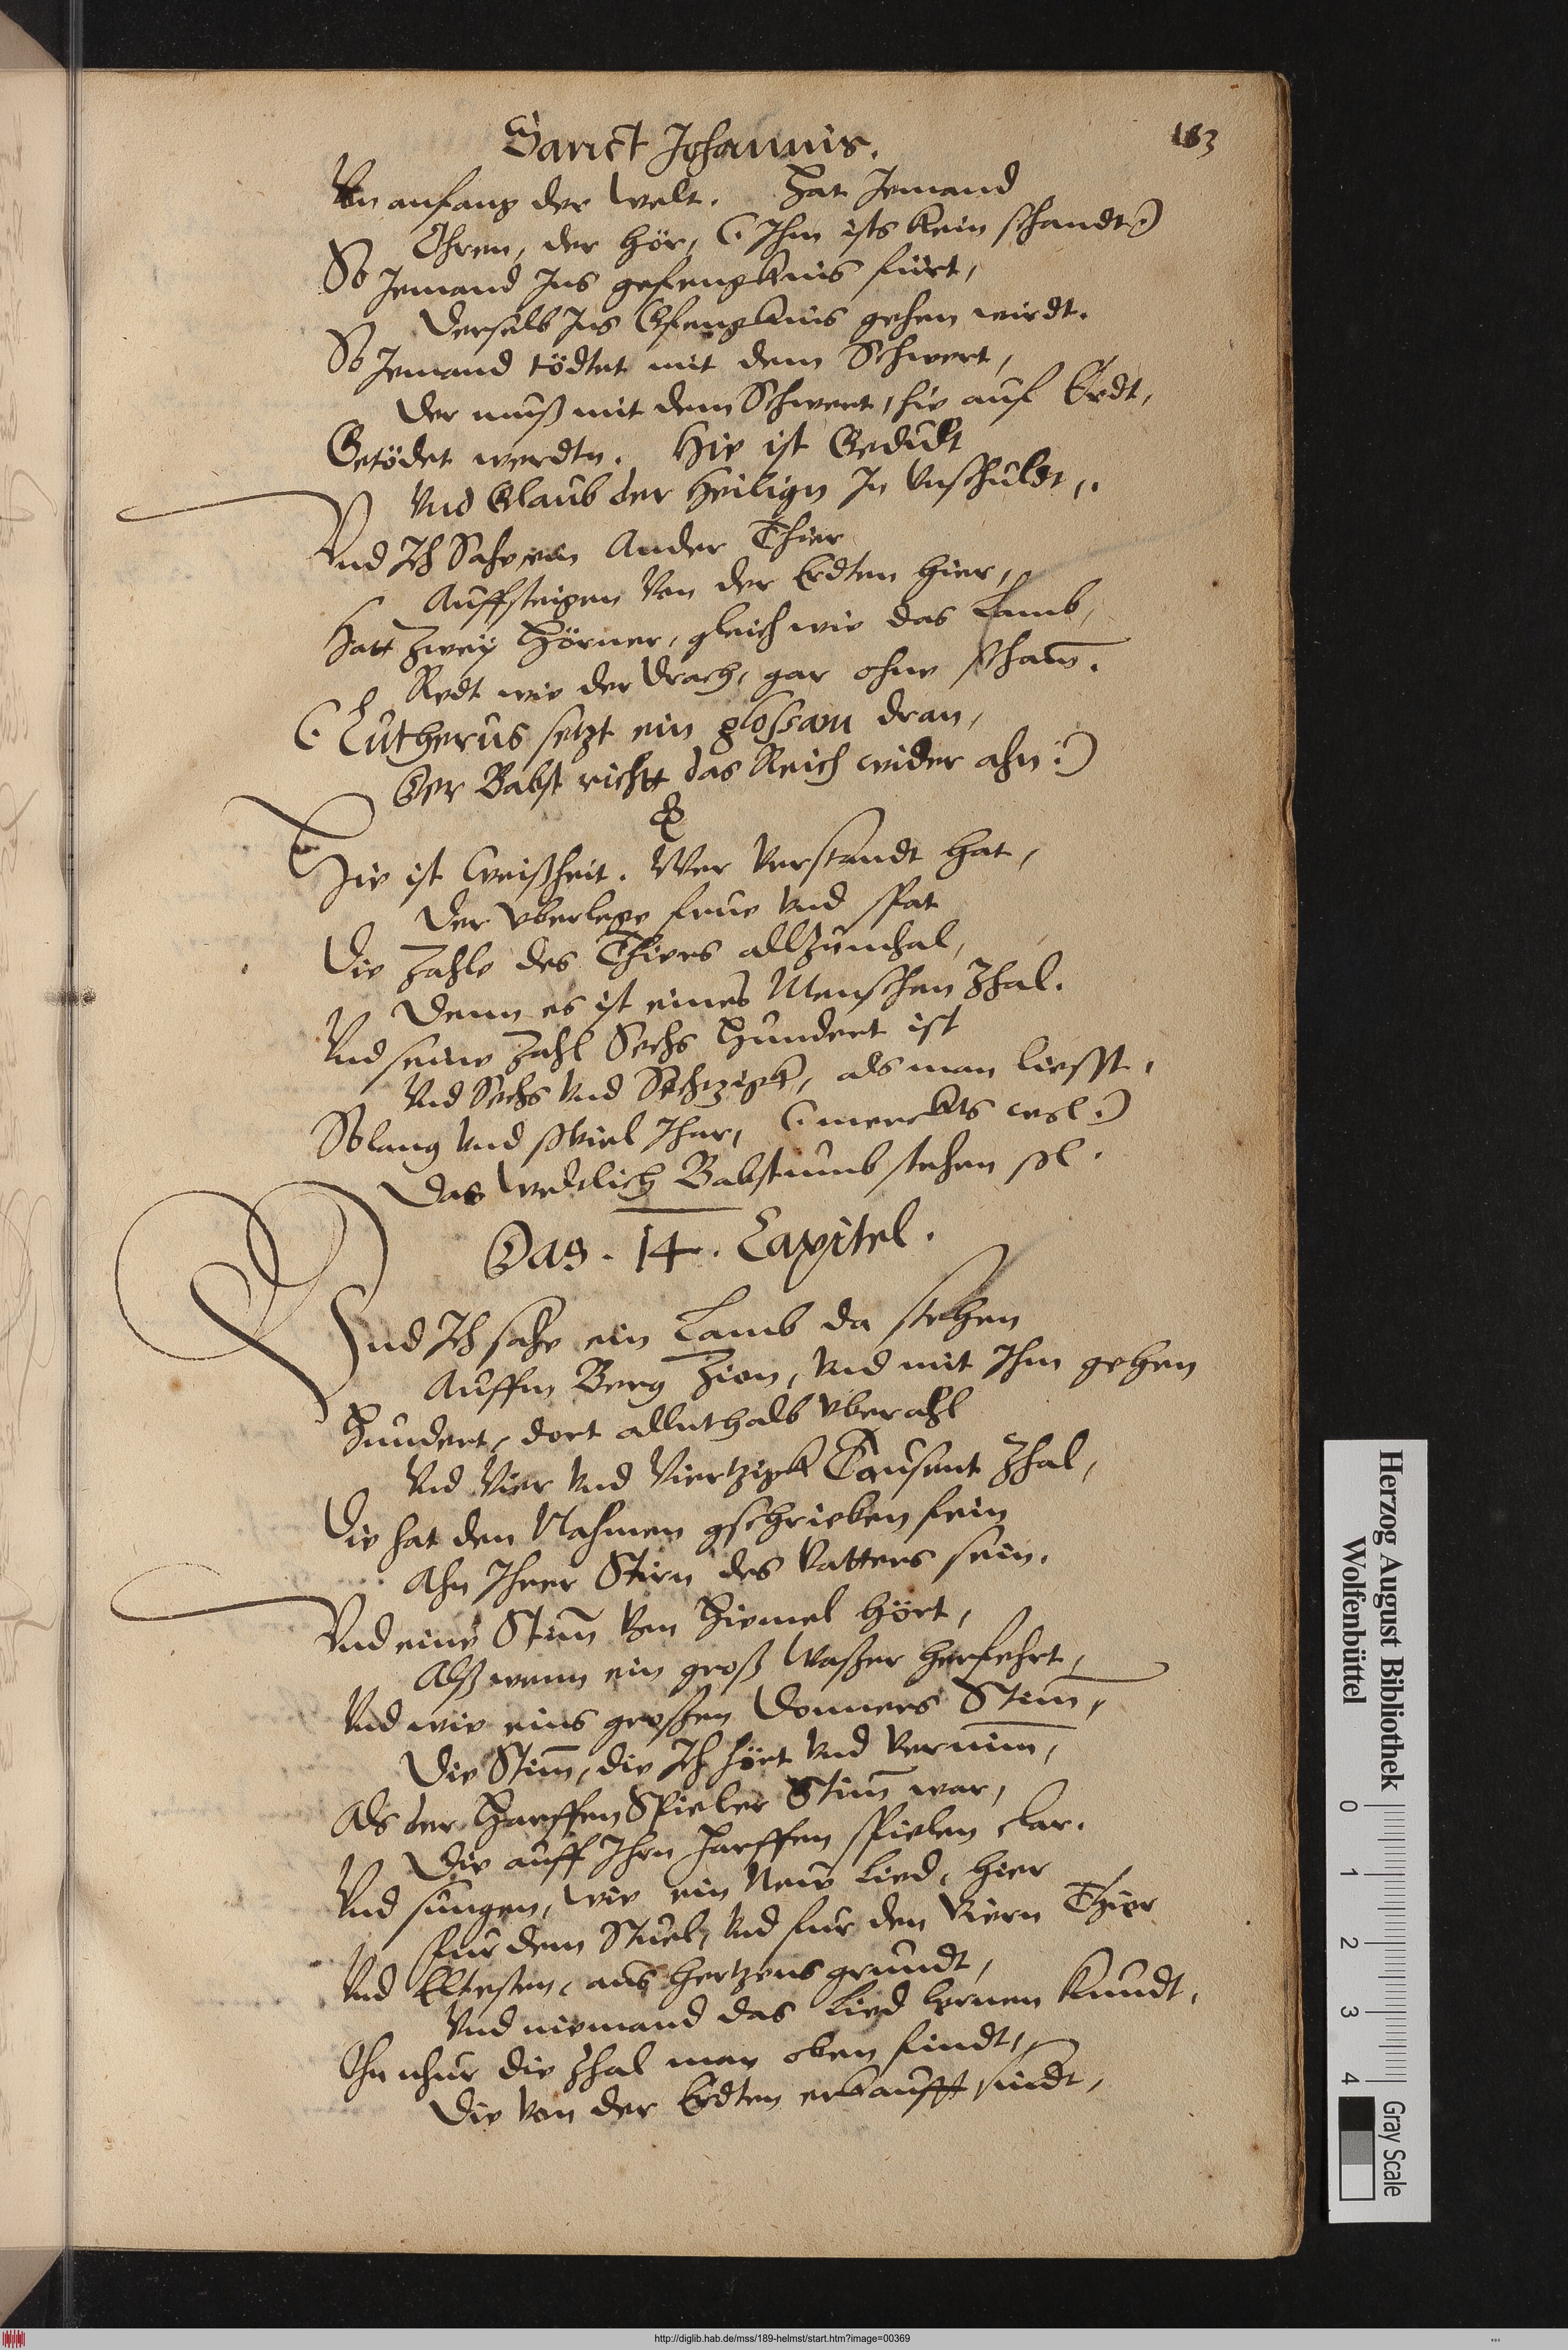 Sanct Johannis.
183
Von anfang der Welt. Hat Jemand
Ohren, der hör, (: Ihm ists kein schandt :)
So Jemand Ins gefengknis fürt,
Derselb Ins Gfengknis gehen wirdt.
So Jemand tödtet mit dem Schwert,
Der muß mit dem Schwert, hie auf Erdt,
Getödet werdtn. Hie ist Gedult
Vnd Glaub der Heilign In Vnschuldt,.
Vnd Ich Sahe ein Ander Thier
Auffsteigen Von der Erdten hier,
Hatt Zwey Hörner, gleich wie das Lamb,
Redt wie der Drach, gar ohne scham̄.
(: Lutherus setzt ein glossam dran,
Der Babst richtt das Reich wider ahn :)
Hie ist Weißheit. Wer Verstandt hat,
Der vberlege frue Vnd spat
Die Zahle des Thiers allzumhal,
Denn es ist eines Menschen Zhal.
Vnd seine Zahl Sechs Hundert ist
Vnd Sechs Vnd Sechzigk, als man liesst,
So lang Vnd soviel Jhar, (: merckts wol :)
Das Weltlich Babstumb stehen sol.
Das . 14 . Capitel.
Vnd Ich sahe ein Lamb da stehen
Auffm Berg Zion, Vnd mit Ihm gehen
Hundert, dort allnthalb vberahl
Vnd Vier Vnd Viertzigk Tausent Zhal,
Die hat den Nahmen gschrieben fein
Ahn Ihrer Stirn des Vatters sein.
Vnd eine Stim̄ Von Hiemel hört,
Alß wenn ein groß Waßer herfehrt,
Vnd wie eins großen Donners Stim̄,
Die Stim̄, die Ich hört Vnd Vernim̄,
Als der Harffen Spieler Stim̄ war,
Die auff Ihrn Harffen spielen clar.
Vnd sungen, wie ein New Lied, hier
Fur dem Stuel, Vnd fur den Viern Thier
Vnd Eltesten, aus hertzens grundt,
Vnd niemand das Lied lernen kundt,
Ohn nhur die Zhal man oben findt,
Die Von der Erdten erkaufft sindt,
Herzog August Bibliothek
Wolfenbüttel
0 1 2 3 4
Gray Scale
http://diglib.hab.de/mss/189-helmst/start.htm?image=00369